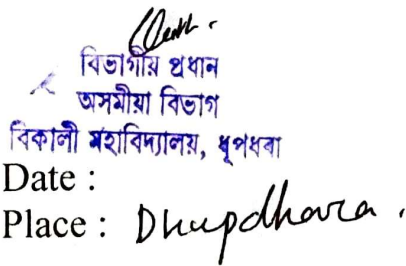 বিভাগীয় প্রধান
অসমীয়া বিভাগ
বিকালী মহাবিদ্যালয়, ধূপধৰা
Date :
Place : Dhupdhara.